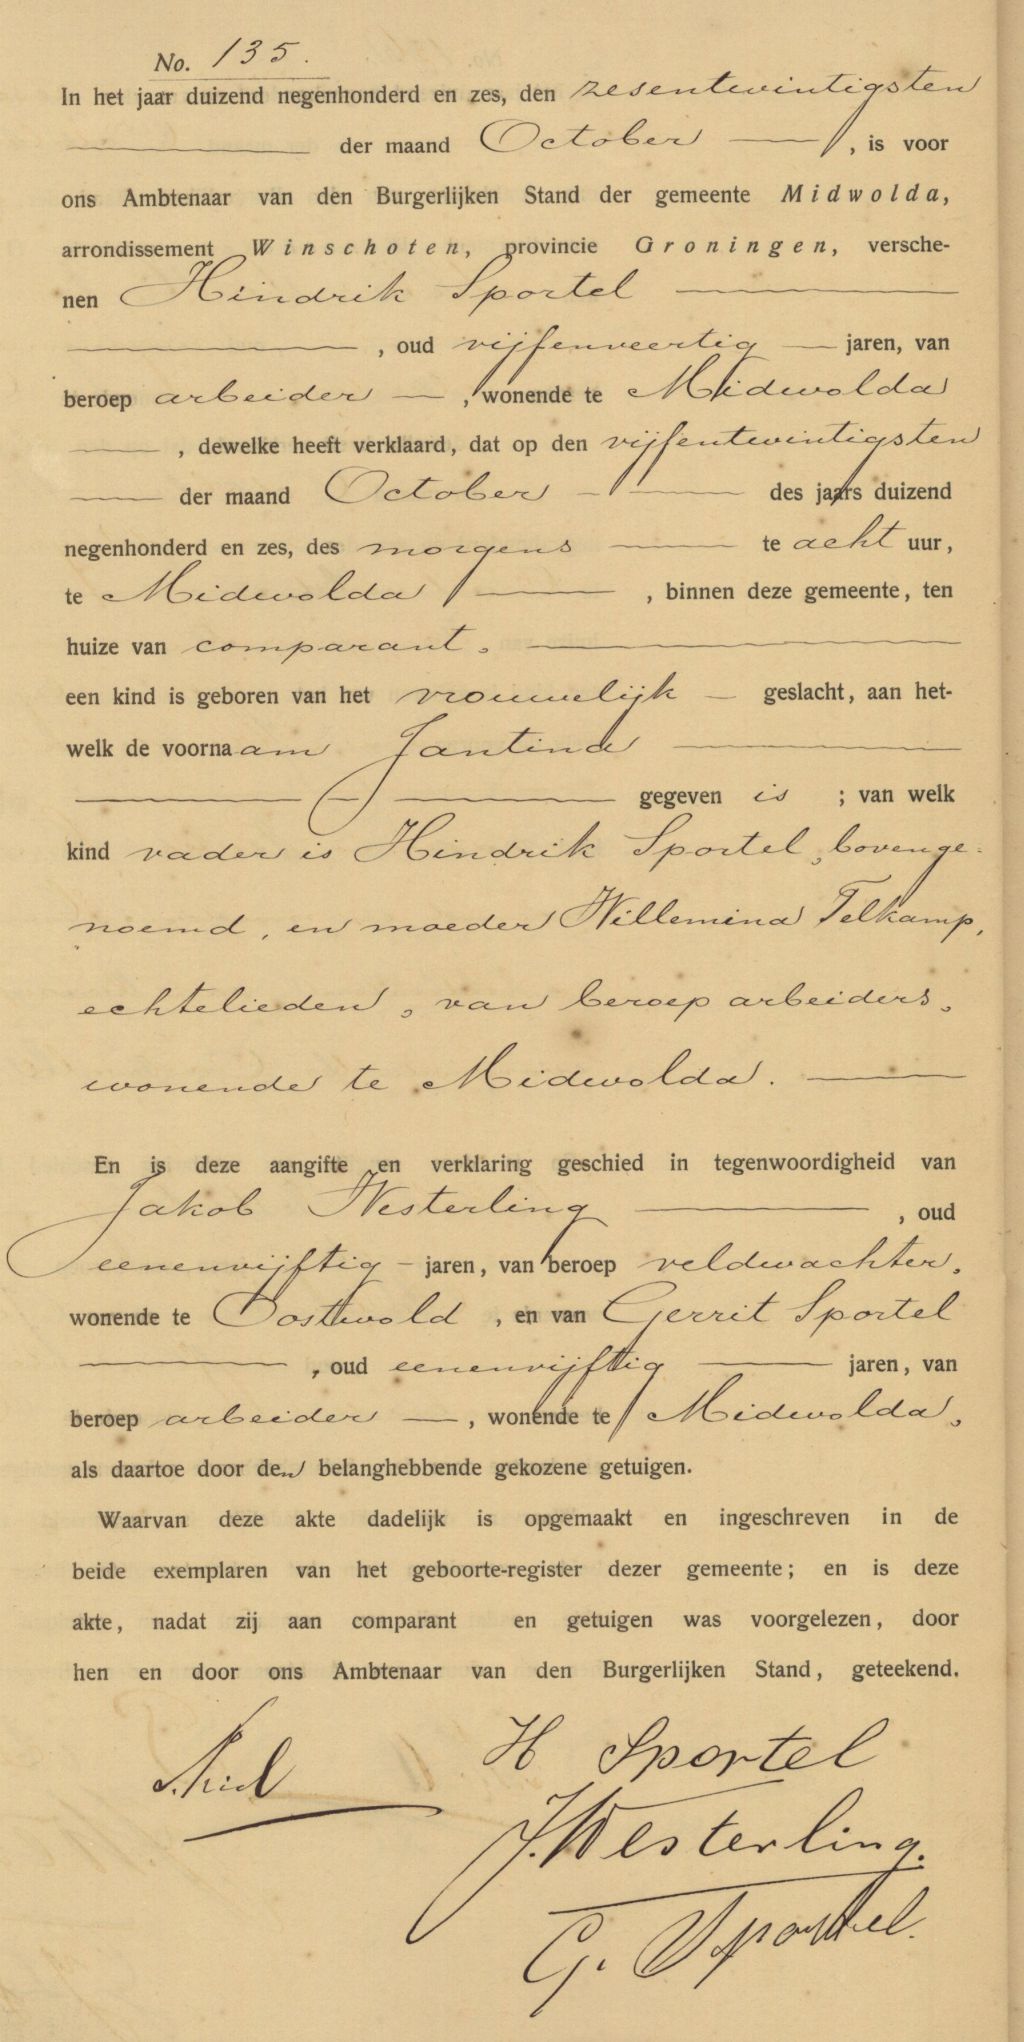 No. 135.
In het jaar duizend negenhonderd en zes, den zesentwintigsten
der maand October, is voor
ons Ambtenaar van den Burgerlijken Stand der gemeente Midwolda,
arrondissement Winschoten, provincie Groningen, versche-
nen Hindrik Sportel
, oud vijfenveertig jaren, van
beroep arbeider, wonende te Midwolda
, dewelke heeft verklaard, dat op den vijfentwintigsten
der maand October des jaars duizend
negenhonderd en zes, des morgens te acht uur,
te Midwolda, binnen deze gemeente, ten
huize van comparant.
een kind is geboren van het vrouwelijk geslacht, aan het-
welk de voornaam Jantina
gegeven is ; van welk
kind vader is Hindrik Sportel, bovenge-
noemd, en moeder Willemina Telkamp,
echtelieden, van beroep arbeiders,
wonende te Midwolda.
En is deze aangifte en verklaring geschied in tegenwoordigheid van
Jakob Westerling, oud
eenenvijftig jaren, van beroep veldwachter,
wonende te Oostwold, en van Gerrit Sportel
, oud eenenvijftig jaren, van
beroep arbeider, wonende te Midwolda,
als daartoe door den belanghebbende gekozene getuigen.
Waarvan deze akte dadelijk is opgemaakt en ingeschreven in de
beide exemplaren van het geboorte-register dezer gemeente; en is deze
akte, nadat zij aan comparant en getuigen was voorgelezen, door
hen en door ons Ambtenaar van den Burgerlijken Stand, geteekend.
H Sportel
J. Westerling.
G. Sportel.